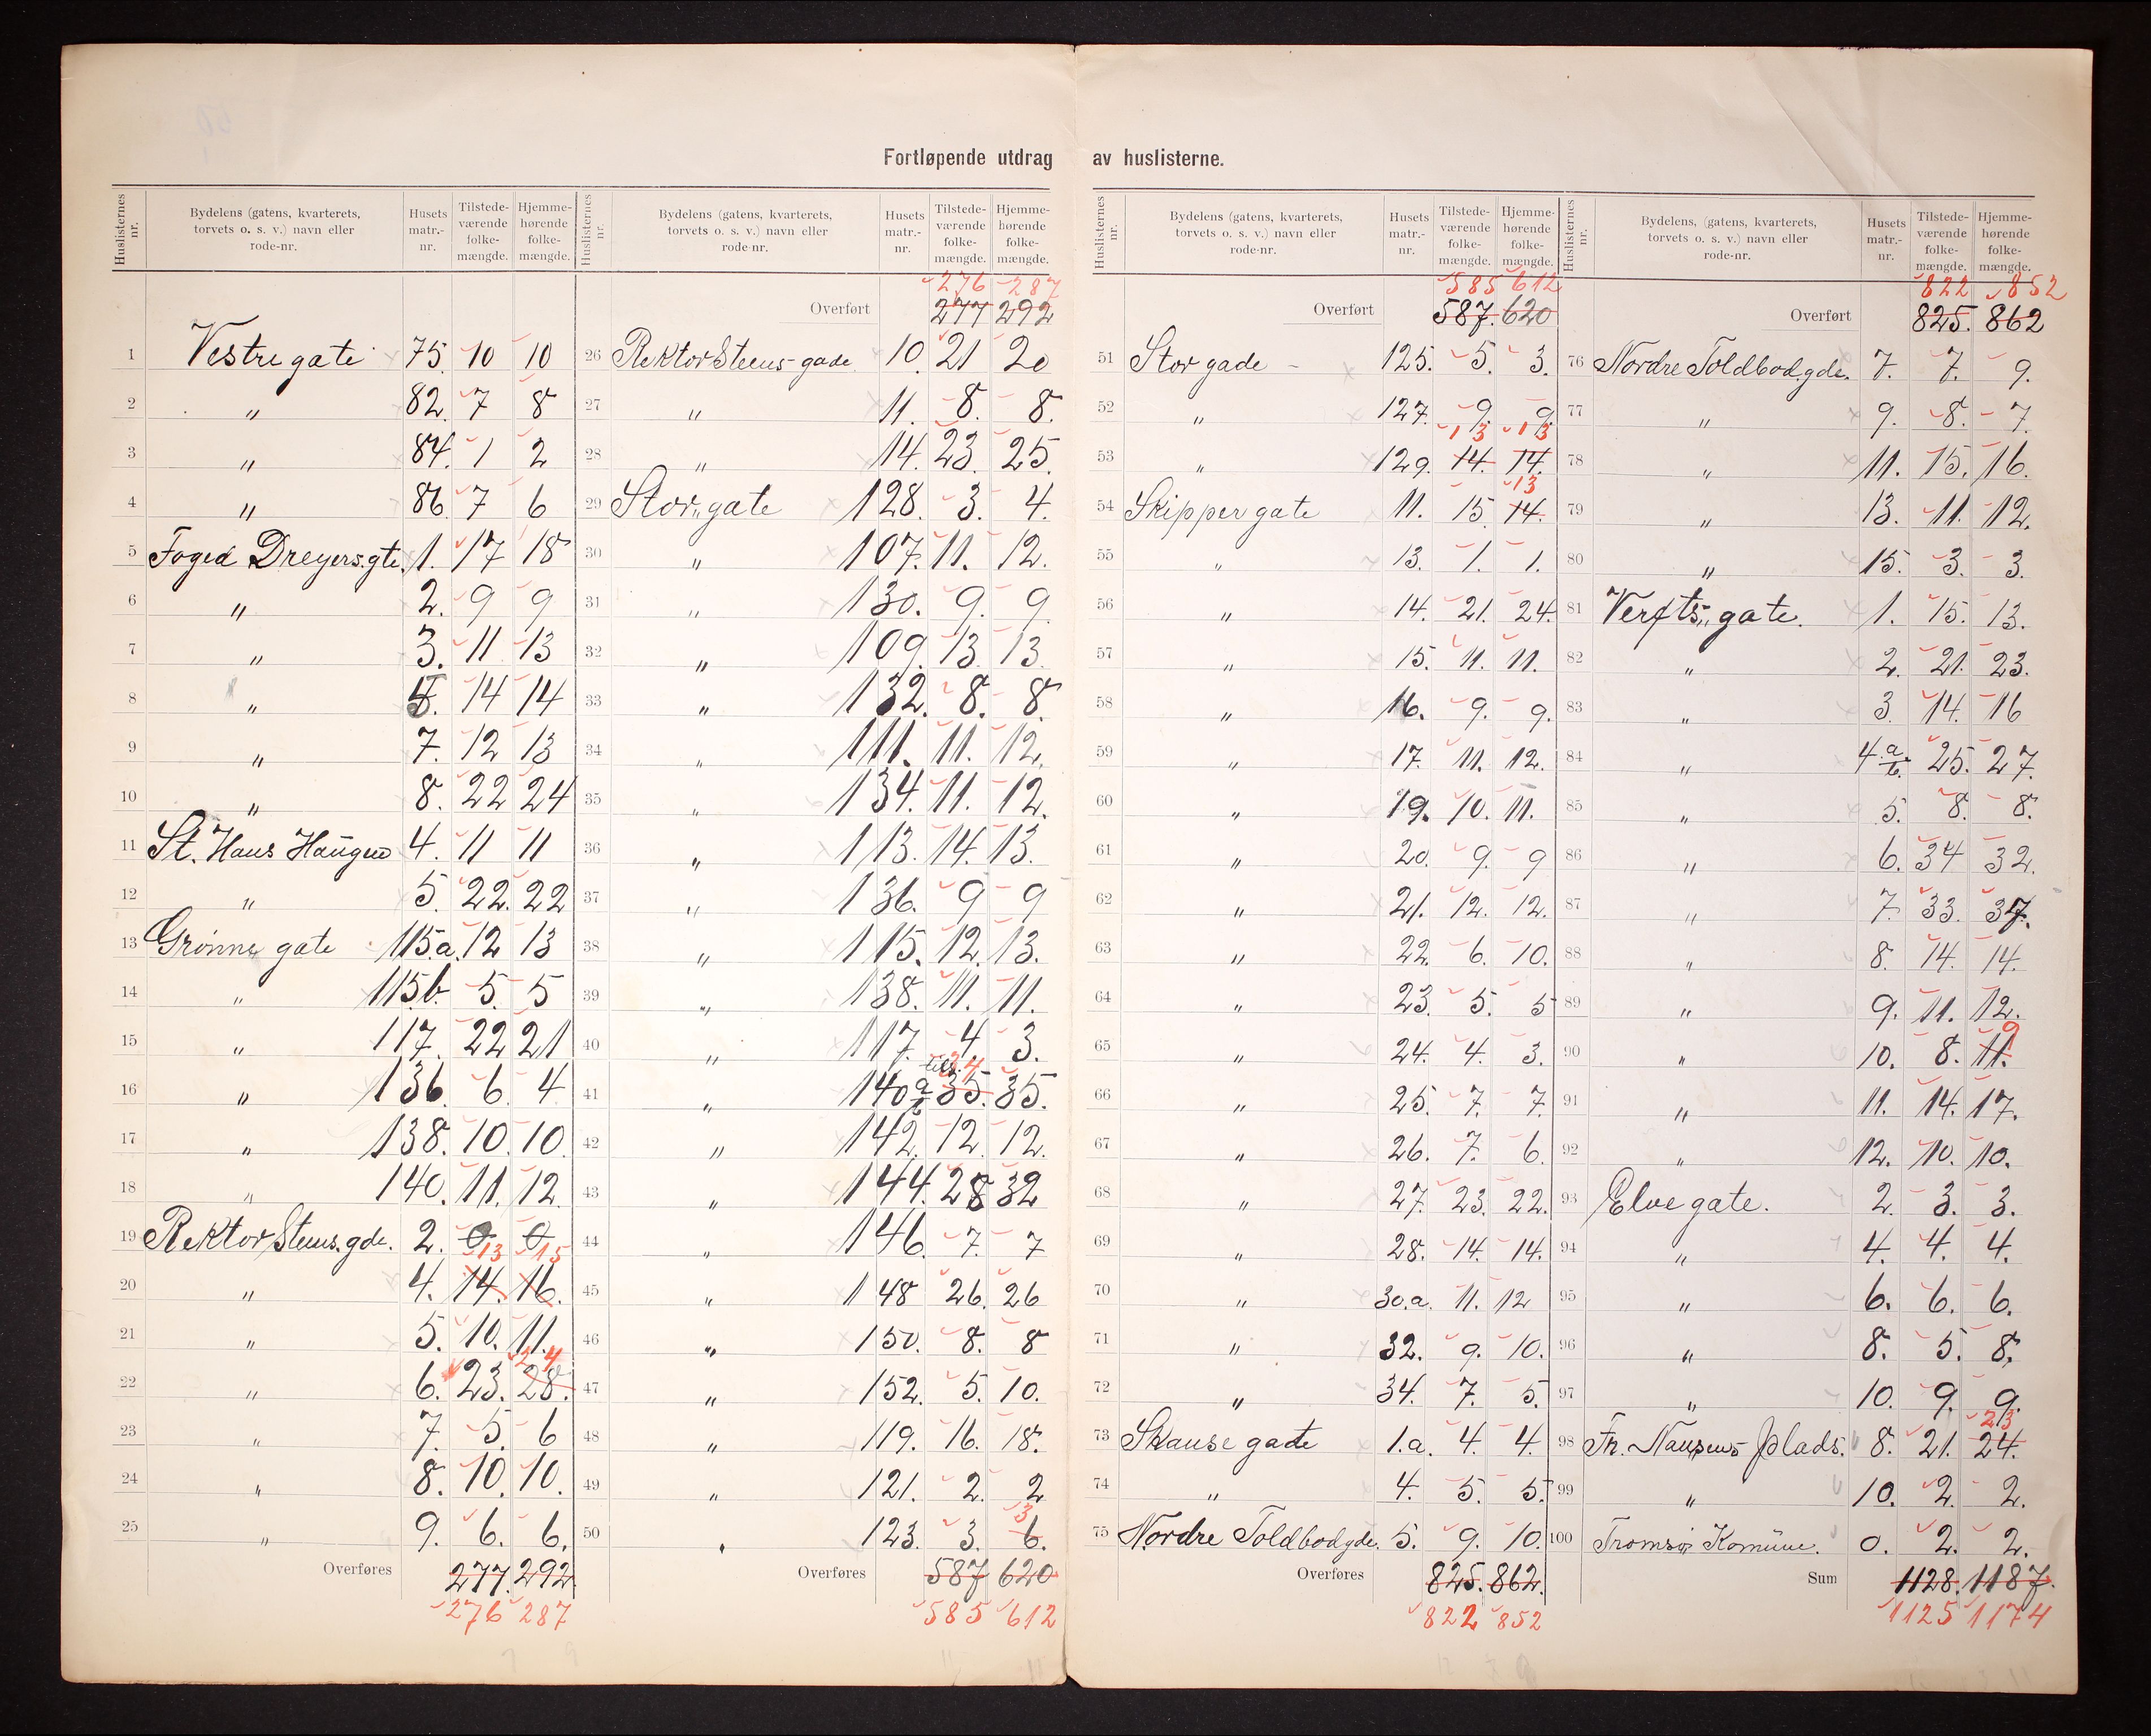 Fortløpende utdrag av huslisterne.
Huslisternes nr. | Bydelens (gatens, kvarterets, torvets o. s. v.) navn eller rode-nr. | Husets matr.-nr. | Tilstedeværende folkemængde. | Hjemmehørende folkemængde.
1 Vestre gate 75. 10 10
2 " 82. 7 8
3 " 84. 1 2
4 " 86. 7 6
5 Foged Dreyers.gte. 1. 17 18
6 " 2. 9 9
7 " 3. 11 13
8 " 5. 14 14
9 " 7. 12 13
10 " 8. 22 24
11 St. Hans Haugen 4. 11 11
12 " 5. 22. 22
13 Grønne gate 115.a. 12 13
14 " 115b. 5. 5
15 " 117. 22 21
16 " 136. 6. 4
17 " 138. 10. 10.
18 " 140. 11. 12.
19 Rektor Steens.gde. 2. 0 0
13 15
20 " 4. 14. 16.
21 " 5. 10. 11.
24
22 " 6. 23. 28.
23 " 7. 5. 6
24 " 8. 10. 10.
25 " 9. 6. 6.
Overføres 277. 292.
276 287
Huslisternes nr. | Bydelens (gatens, kvarterets, torvets o. s. v.) navn eller rode-nr. | Husets matr.-nr. | Tilstedeværende folkemængde. | Hjemmehørende folkemængde.
276 287
Overført 277 292
26 Rektor Steens-gade 10. 21 20
27 " 11. 8. 8.
28 " 14. 23. 25.
29 Stor,,gate 128. 3. 4.
30 " 107. 11. 12.
31 " 130. 9. 9.
32 " 109. 13. 13.
33 " 132. 8. 8.
34 " 111. 11. 12.
35 " 134. 11. 12.
36 " 113. 14. 13.
37 " 136. 9 9
38 " 115. 12. 13.
39 " 138. 11. 11.
40 " 117. 4. 3.
34
41 " 140 a/b 35. 35.
42 " 142. 12. 12.
43 " 144. 28 32
44 " 146. 7. 7
45 " 148 26. 26
46 " 150. 8. 8
47 " 152. 5. 10.
48 " 119. 16. 18.
49 " 121. 2. 2
3
50 " 123. 3. 6.
Overføres 587 620
585 612
Huslisternes nr. | Bydelens (gatens, kvarterets, torvets o. s. v.) navn eller rode-nr. | Husets matr.-nr. | Tilstedeværende folkemængde. | Hjemmehørende folkemængde.
585 612
Overført 587. 620
51 Stor gade - 125. 5. 3.
52 " 127. 9. 9.
13 13
53 " 129. 14. 14.
13
54 Skipper gate 11. 15. 14.
55 " 13. 1. 1.
56 " 14. 21. 24.
57 " 15. 11. 11.
58 " 16. 9. 9.
59 " 17. 11. 12.
60 " 19. 10. 11.
61 " 20. 9. 9
62 " 21. 12. 12.
63 " 22. 6. 10.
64 " 23. 5. 5
65 " 24. 4. 3.
66 " 25. 7. 7.
67 " 26. 7. 6.
68 " 27. 23. 22.
69 " 28. 14. 14.
70 " 30.a. 11. 12
71 " 32. 9. 10.
72 " 34. 7. 5.
73 Skanse gade 1.a. 4. 4.
74 " 4. 5. 5.
75 Nordre Toldbodgde. 5. 9. 10.
Overføres 825. 862.
822 852
Huslisternes nr. | Bydelens, (gatens, kvarterets, torvets o. s. v.) navn eller rode-nr. | Husets matr.-nr. | Tilstedeværende folkemængde. | Hjemmehørende folkemængde.
822 852
Overført 825. 862
76 Nordre Toldbod.gde. 7. 7. 9.
77 " 9. 8. 7.
78 " 11. 15. 16.
79 " 13. 11. 12.
80 " 15. 3. 3.
81 Verfts,,gate. 1. 15. 13.
82 " 2. 21. 23.
83 " 3. 14. 16
84 " 4 a/b. 25. 27.
85 " 5. 8. 8.
86 " 6. 34 32.
87 " 7. 33. 37.
88 " 8. 14. 14.
89 " 9. 11. 12.
9
90 " 10. 8. 11.
91 " 11. 14. 17.
92 " 12. 10. 10.
93 Elve gate. 2. 3. 3.
94 " 4. 4. 4.
95 " 6. 6. 6.
96 " 8. 5. 8.
97 " 10. 9. 9.
23
98 Fr. Nansens plads. 8. 21. 24.
99 " 10. 2. 2.
100 Tromsø Komune. 0. 2. 2.
Sum 1128. 1187.
1125 1174